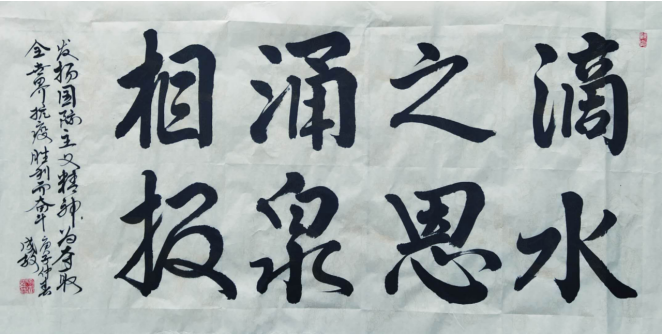 滴水
之恩
涌泉
相报
发扬国际主义精神为夺取
全世界抗疫胜利而奋斗
庚子仲春